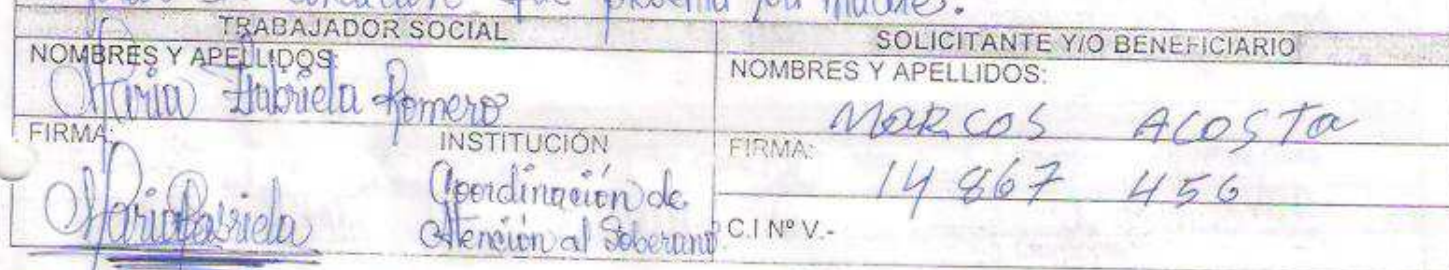 que presenta sus madres.
TRABAJADOR SOCIAL
NOMBRES Y APELLIDOS:
Maria Gabriela Romero
FIRMA:
MariaGabriela
INSTITUCIÓN
Coordinación de
Atención al Soberano
SOLICITANTE Y/O BENEFICIARIO
NOMBRES Y APELLIDOS:
MARCOS ACOSTA
FIRMA:
14 867 456
C.I Nº V.-